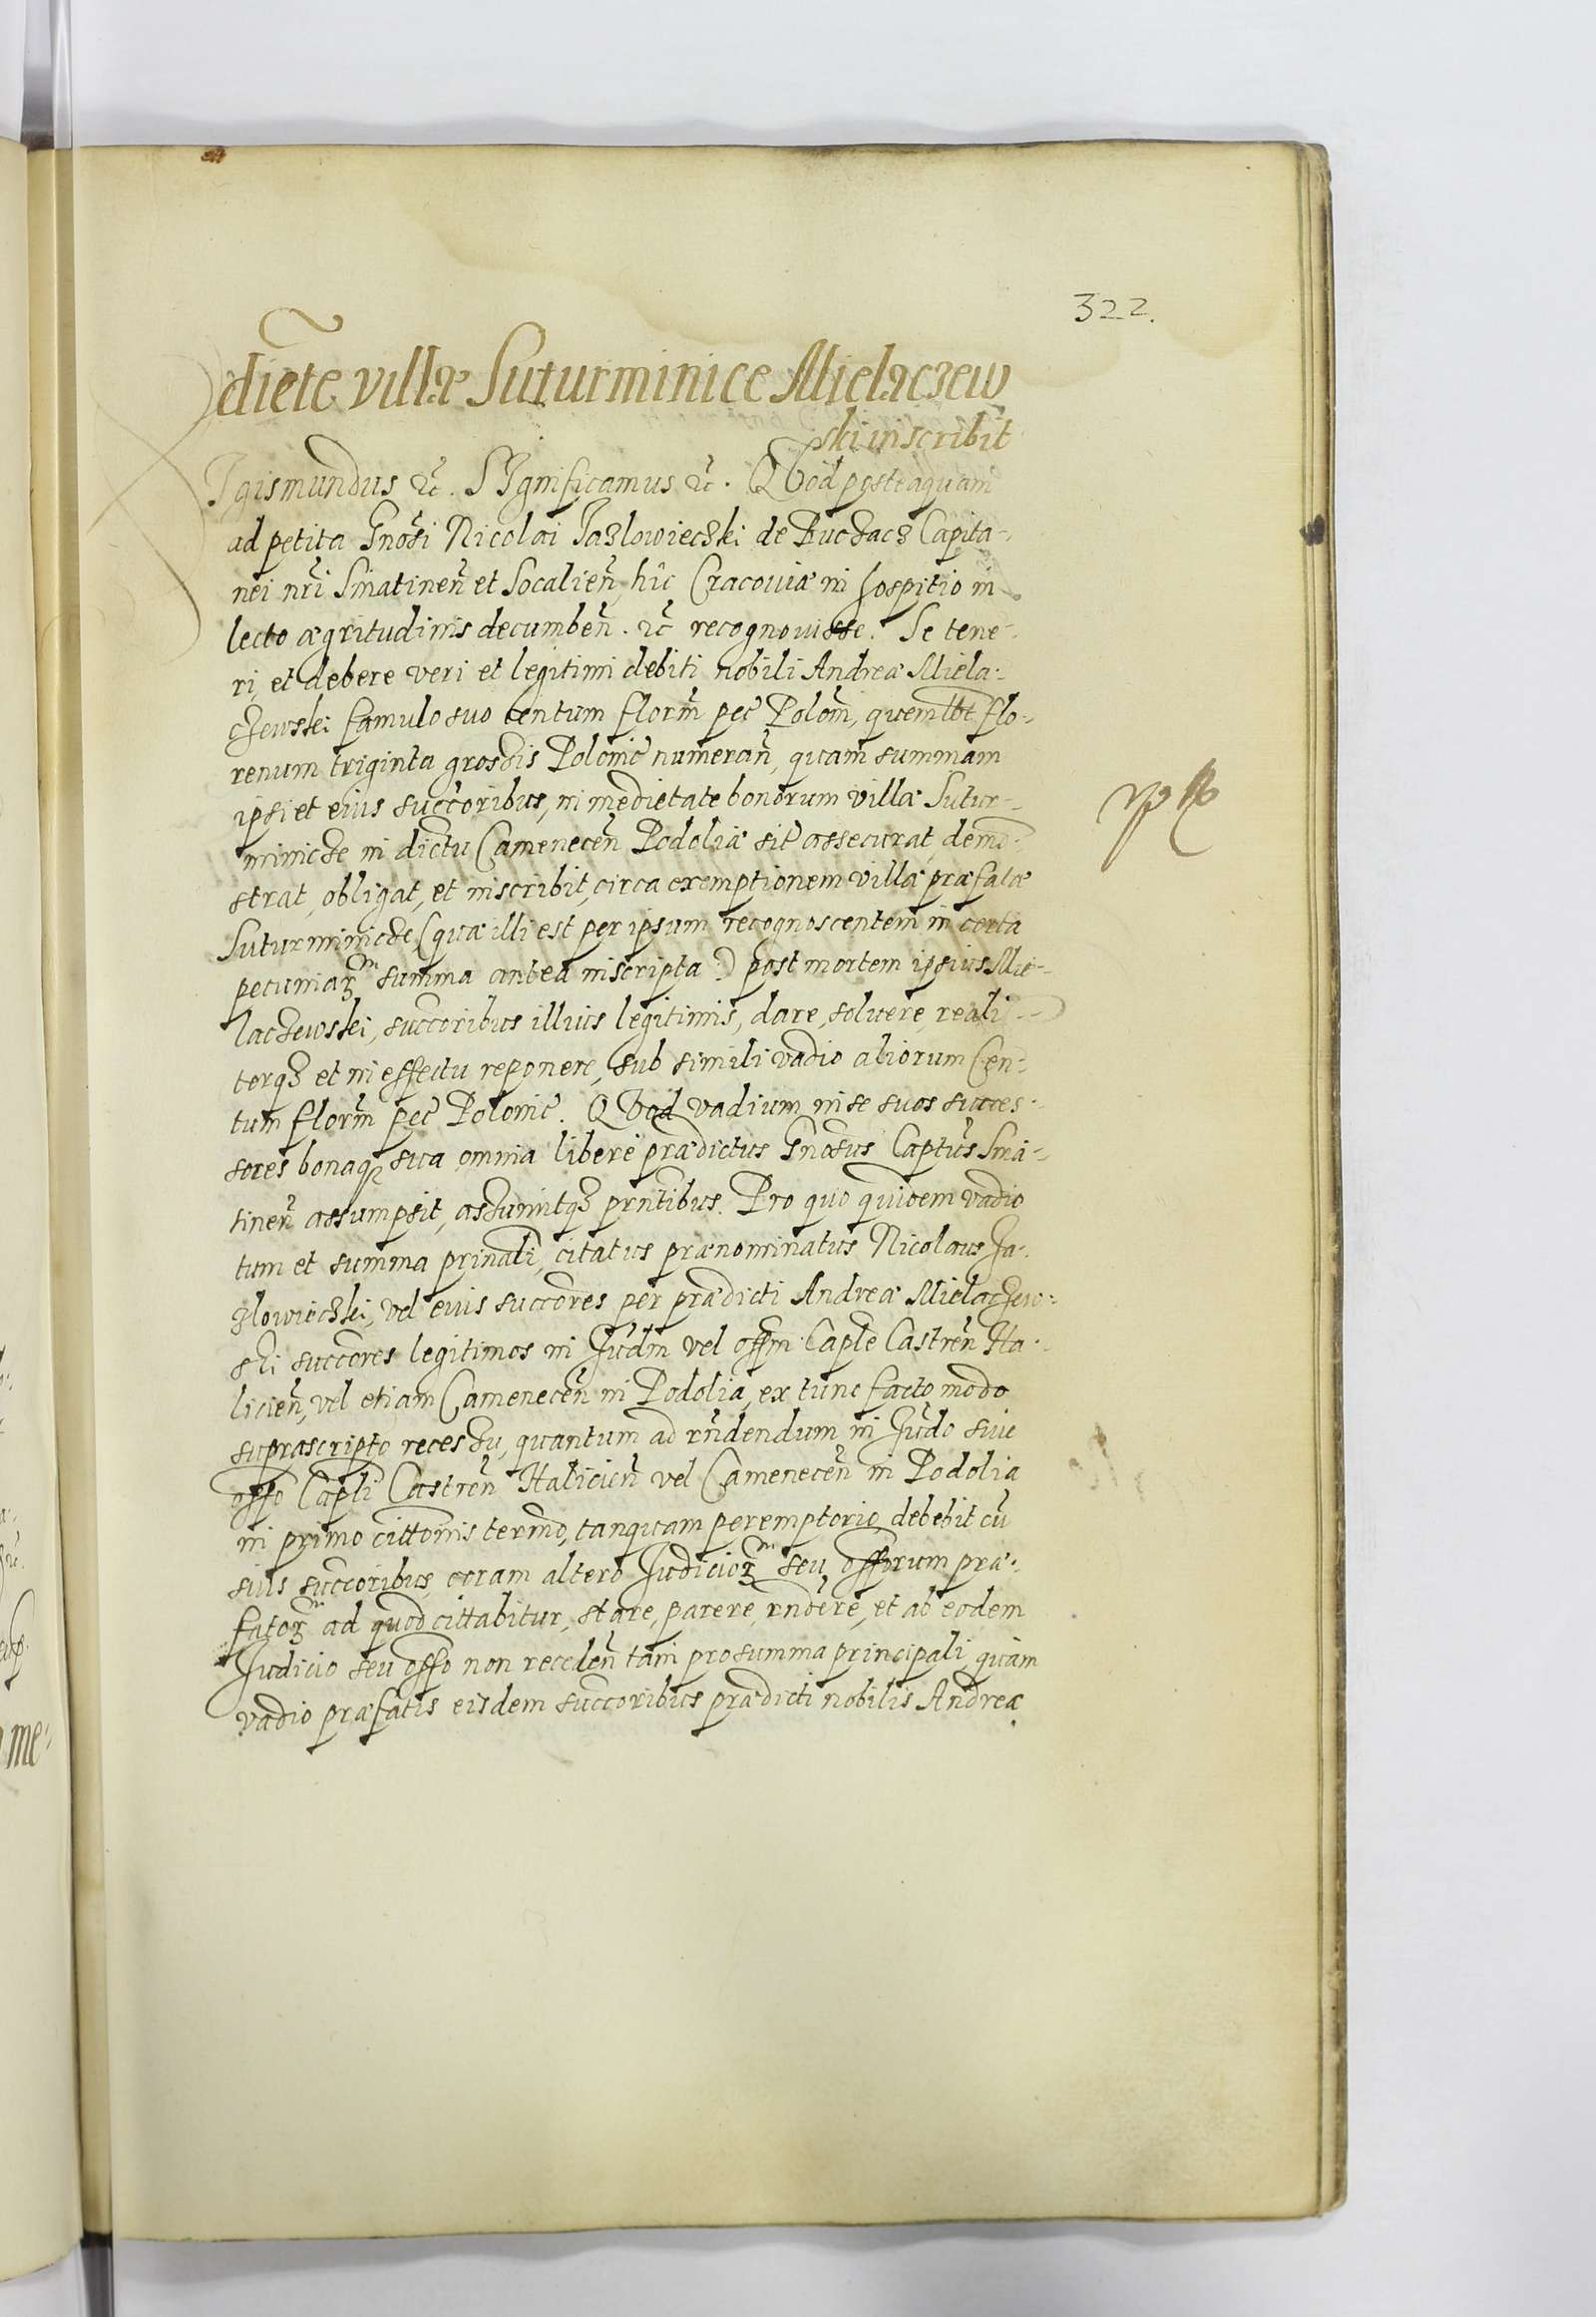 322.
diete villæ Suturminice Mielaczew
ski inscribit
Igismundus etc̃. SIgnificamus etc̃. QVod posteaquam
ad petita Gnosi Nicolai Jazlowieczki de Buczacz Capita-
nei nr̃i Sniatineñ et Socalieñ, hîc Cracouiæ in hospitio in
lecto ægritudinis decumbeñ. etc̃ recognouisse. Se tene-
ri, et debere veri et legitimi debiti nobili Andreæ Miela-
czewski famulo suo centum florm̃ pec̃ Polom̃, quemlbt̃ flo-
renum triginta grossis Polonic̃ numeran̄, quam summam
ipsi et eius succ̃oribus, in medietate bonorum villæ Sutur-
minicze in dictu Cameneceñ Podoliæ sit̃ assecurat, demõ-
strat, obligat, et inscribit, circa exemptionem villæ præfatæ
Suturminicze (quæ illi est per ipsum recognoscentem in certa
pecuniaꝝ summa antea inscripta) post mortem ipsius Mie-
laczewski, succ̃oribus illius legitimis, dare, soluere, reali-
terqʒ et in effectu reponere, sub simili vadio aliorum Cen-
tum florm̃ pec̃ Polonic̃. QVod vadium in se suos succes-
sores bonaqʒ sua omnia liberè prædictus Gnosus Captũs Snia-
tineñ assumpsit, assumitqʒ prñtibus. Pro quo quidem vadio
tum et summa prinali, citatus prænominatus Nicolaus Ja-
zlowieczki, vel eius succ̃ores per prædicti Andreæ Mielaczew-
ski succ̃ores legitimos in Judm̃ vel offm̃ Caplẽ Castreñ Ha-
licieñ, vel etiam Cameneceñ in Podolia, ex tunc facto modo
suprascripto recessu, quantum ad rñdendum in Judõ siue
offo Caplĩ Castreñ Halicieñ vel Cameneceñ in Podolia
in primo cittõnis termõ, tanquam peremptorio, debebit cũ
suis succ̃oribus coram altero Judicioꝝ seu offorum præ-
fatoꝝ ad quod cittabitur, stare, parere, rñdere, et ab eodem
Judicio seu offo non recedeñ tam pro summa principali, quàm
vadio præfatis eisdem succ̃oribus prædicti nobilis Andreæ